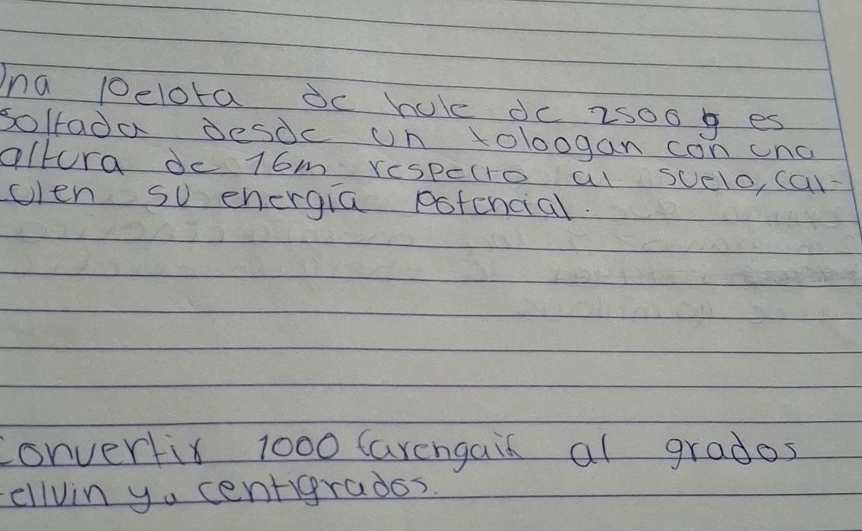 Una pelota de hule de 2500 g es
soltada desde un toloogan con una
altura de 16m respecto al suelo, cal-
culen su energía potencial.
Convertir 1000 farengait al grados
kellvin y a centigrados.